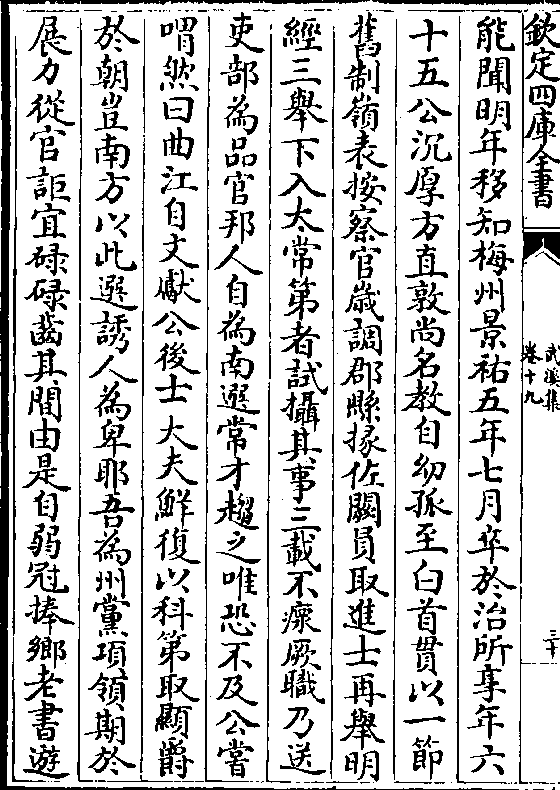 欽定四庫全書
武溪集
卷十九
三十
能聞明年移知梅州景祐五年七月卒於治所享年六
十五公沉厚方直敦尚名教自幼孤至白首貫以一節
舊制嶺表按察官歲調郡縣掾佐闕員取進士再舉明
經三舉下入太常第者試攝其事三載不瘝厥職乃送
吏部為品官邦人自為南選常才趨之唯恐不及公嘗
喟然曰曲江自文獻公後士大夫鮮復以科第取顯爵
於朝豈南方以此選誘人為卑耶吾為州黨項領期於
展力從官詎宜碌碌齒其間由是自弱冠捧鄉老書遊